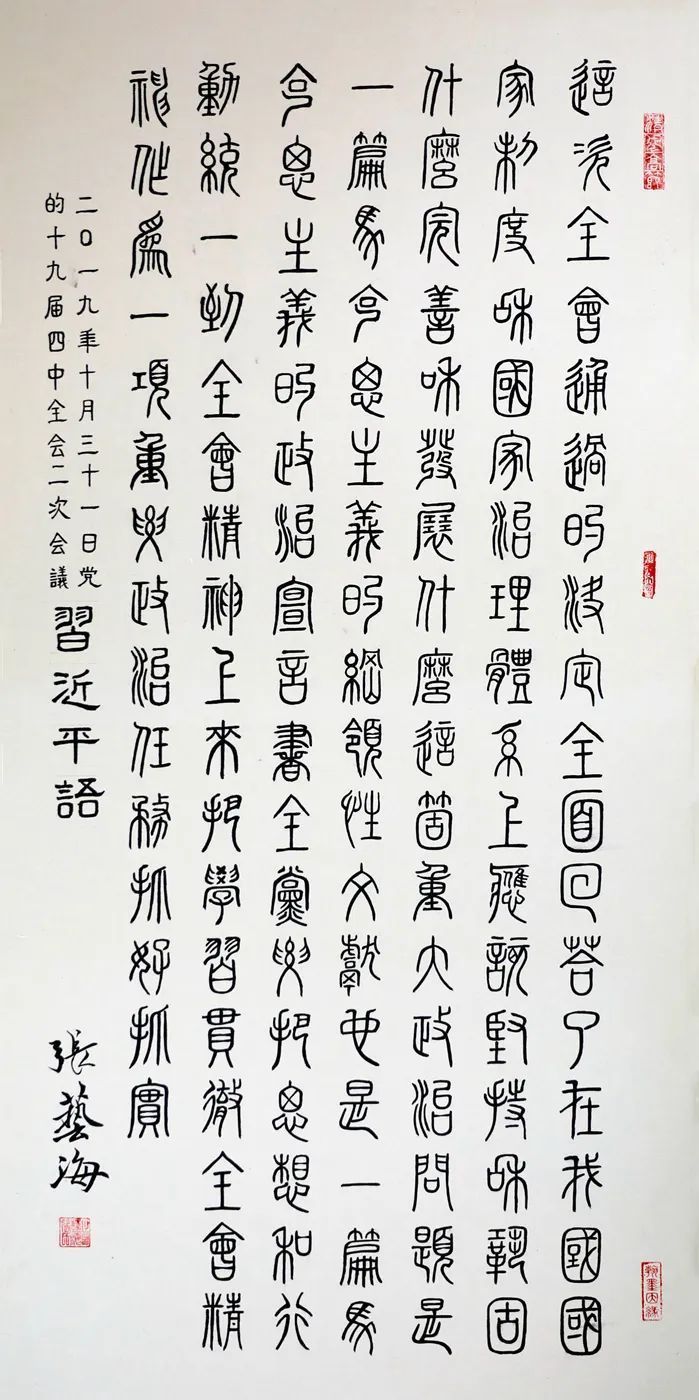 這次全會通過的決定全面回答了在我國國
家制度和國家治理體系上應該堅持和鞏固
什麼完善和發展什麼這箇重大政治問題是
一篇馬克思主義的綱領性文獻也是一篇馬
克思主義的政治宣言書全黨要把思想和行
動統一到全會精神上來把學習貫徹全會精
神作爲一項重要政治任務抓好抓實
二〇一九年十月三十一日党
的十九届四中全会二次会議
習近平語
張藝海